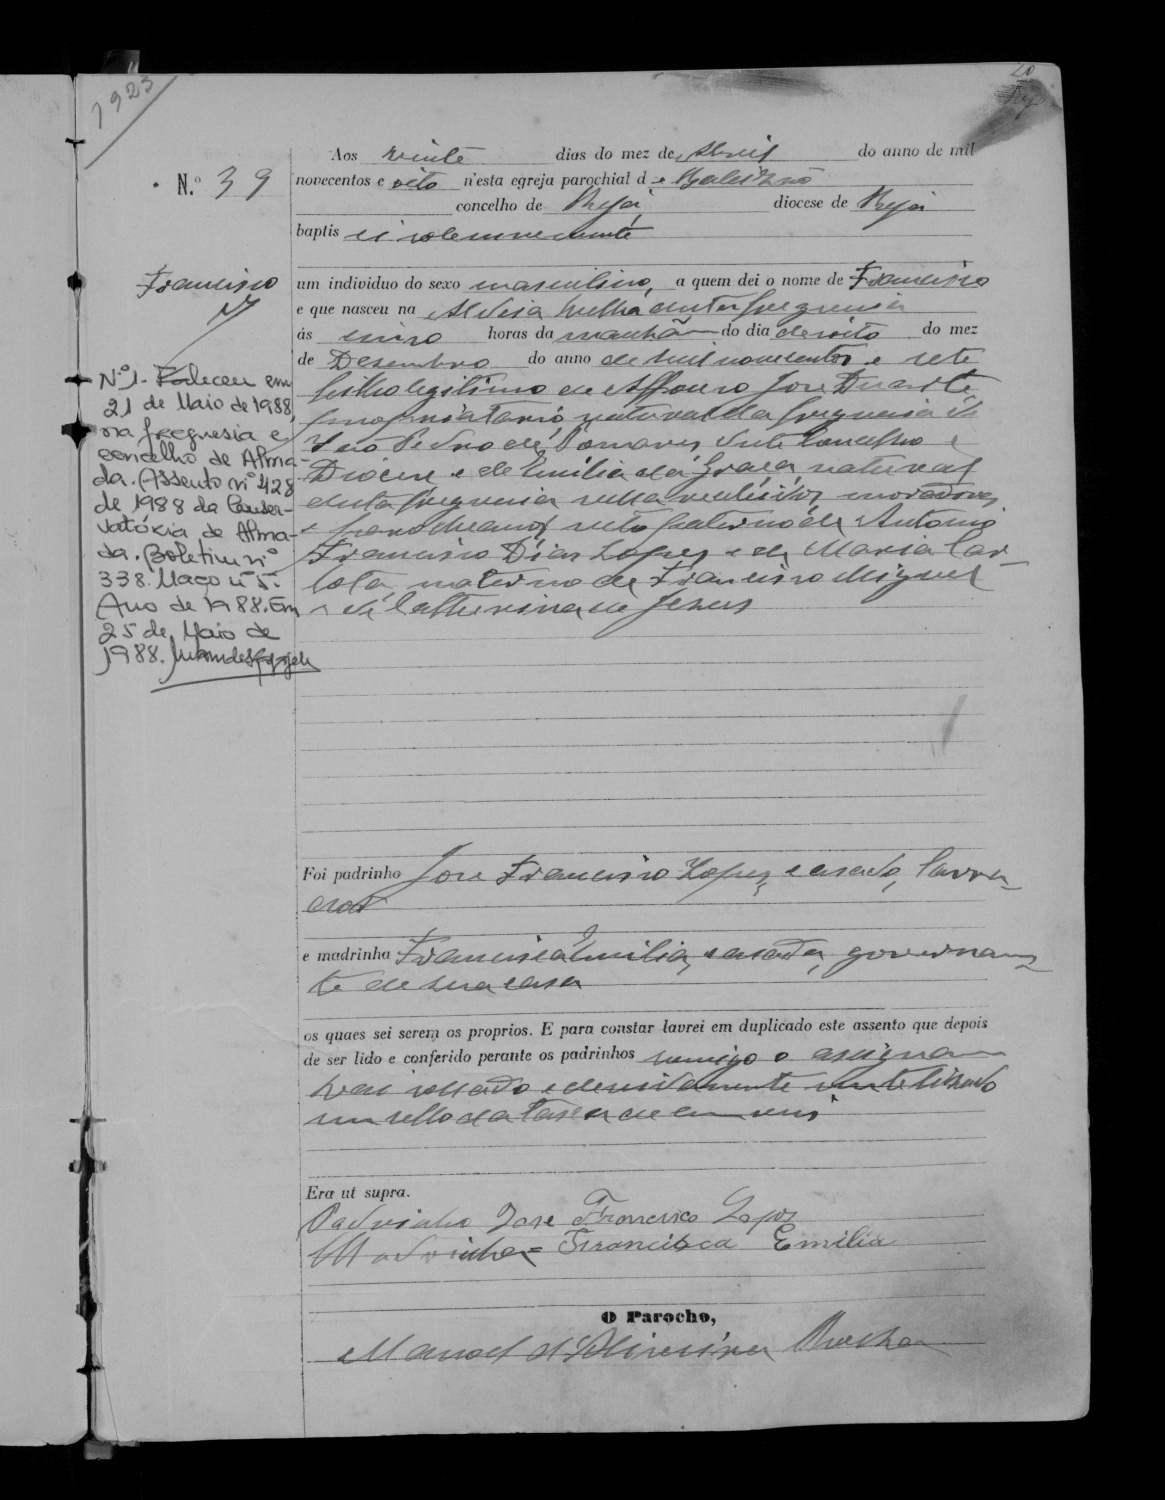 1923
20
Aos vinte dias do mez de Abril do anno de mil
N.º 39
novecentos e oito n'esta egreja parochial de Baleizão
concelho de Beja diocese de Beja
baptisei solemnemente
Francisco
um individuo do sexo masculino, a quem dei o nome de Francisco
e que nasceu na Aldeia Velha desta freguesia
ás cinco horas da manhã do dia dezoito do mez
de Desembro do anno de mil novecentos e sete
filho legitimo de Affonso Jose Duarte,
proprietario, natural da freguesia de
São Pedro de Pomares, deste Concelho e
Diocese e de Emilia da Graça, natural
desta freguesia nella recebidos, moradores
e parochianos, neto paterno de Antonio
Francisco Dias Lopes e de Maria Car-
lota, materno de Francisco Miguel
e de Catherina de Jesus
Nº1- Faleceu em
21 de Maio de 1988,
na freguesia e
concelho de Alma-
da. (Assento nº 428
de 1988 da Conser-
vatória de Alma-
da. Boletim nº
338. Maço nº 5.
Ano de 1988. Em
25 de Maio de
1988.
Foi padrinho Jose Francisco Lopes, casado, lavra-
dor
e madrinha Francisca Emilia, casada, governan-
te de sua casa
os quaes sei serem os proprios. E para constar lavrei em duplicado este assento que depois
de ser lido e conferido perante os padrinhos comigo o assignam
Vai collado e devidamente inutilisado
um sello da taxa de cem reis
Era ut supra.
Padrinho Jose Francisco Lopes
Madrinha = Francisca Emilia
O Parocho,
Manoel d'Oliveira Rocha